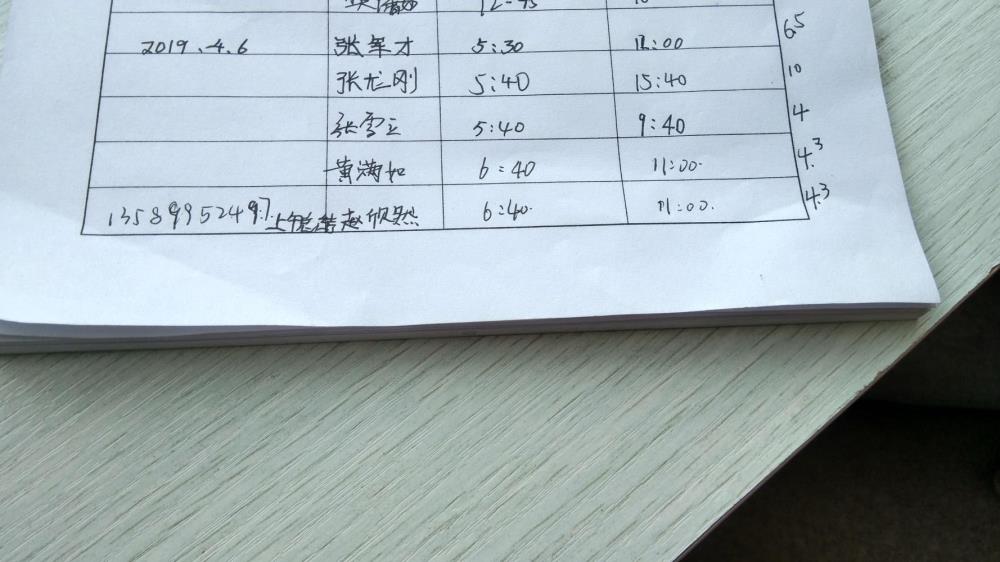 12-45
2019.4.6 张军才 5:30 12:00 6.5
张龙刚 5:40 15:40 10
张雪立 5:40 9:40 4
黄满如 6:40 11:00 4.3
13589952497 赵欣然 6:40 11:00 4.3